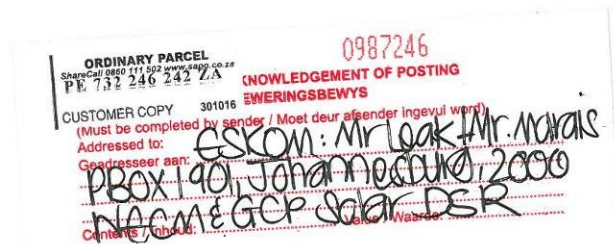 0987246
ORDINARY PARCEL
ShareCall 0860 111 502 www.sapo.co.za
PE 732 246 242 ZA
KNOWLEDGEMENT OF POSTING
EWERINGSBEWYS
CUSTOMER COPY 301016
(Must be completed by sender / Moet deur afsender ingevul word)
Addressed to: ESKOM: Mr Leak + Mr. Marais
Geadresseer aan:
PBOX 1901, Johannesburg, 2000
Contents / Inhoud: Value / Waarde
GCP Solar DSR